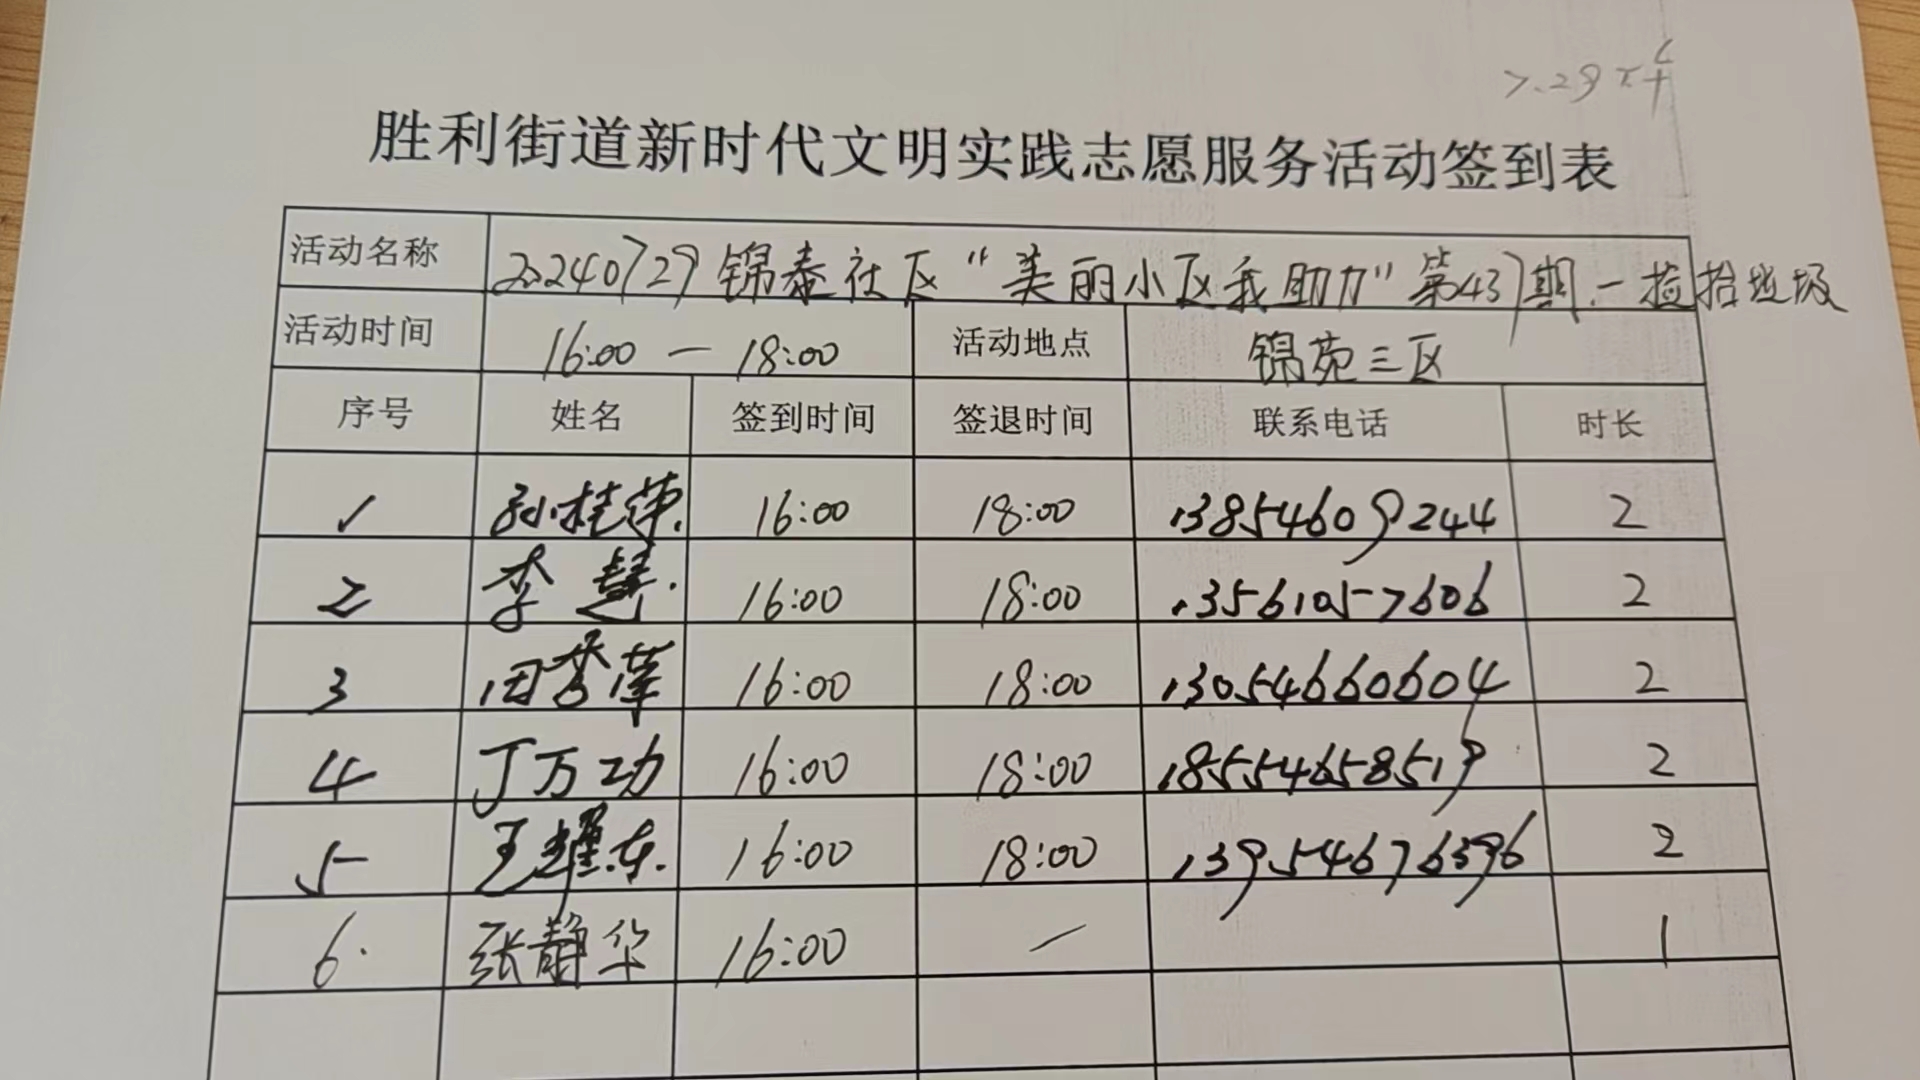 7.29
胜利街道新时代文明实践志愿服务活动签到表
活动名称 20240729锦泰社区“美丽小区我助力”第437期.一捡拾垃圾
活动时间 16:00 — 18:00 活动地点 锦苑三区
序号 姓名 签到时间 签退时间 联系电话 时长
1 孙桂荣. 16:00 18:00 13854609244 2
2 李慧. 16:00 18:00 13561057606 2
3 田秀萍 16:00 18:00 13054660604 2
4 丁万功 16:00 18:00 18554658519 2
5 王耀东. 16:00 18:00 13954676396 2
6. 张静华 16:00 — 1